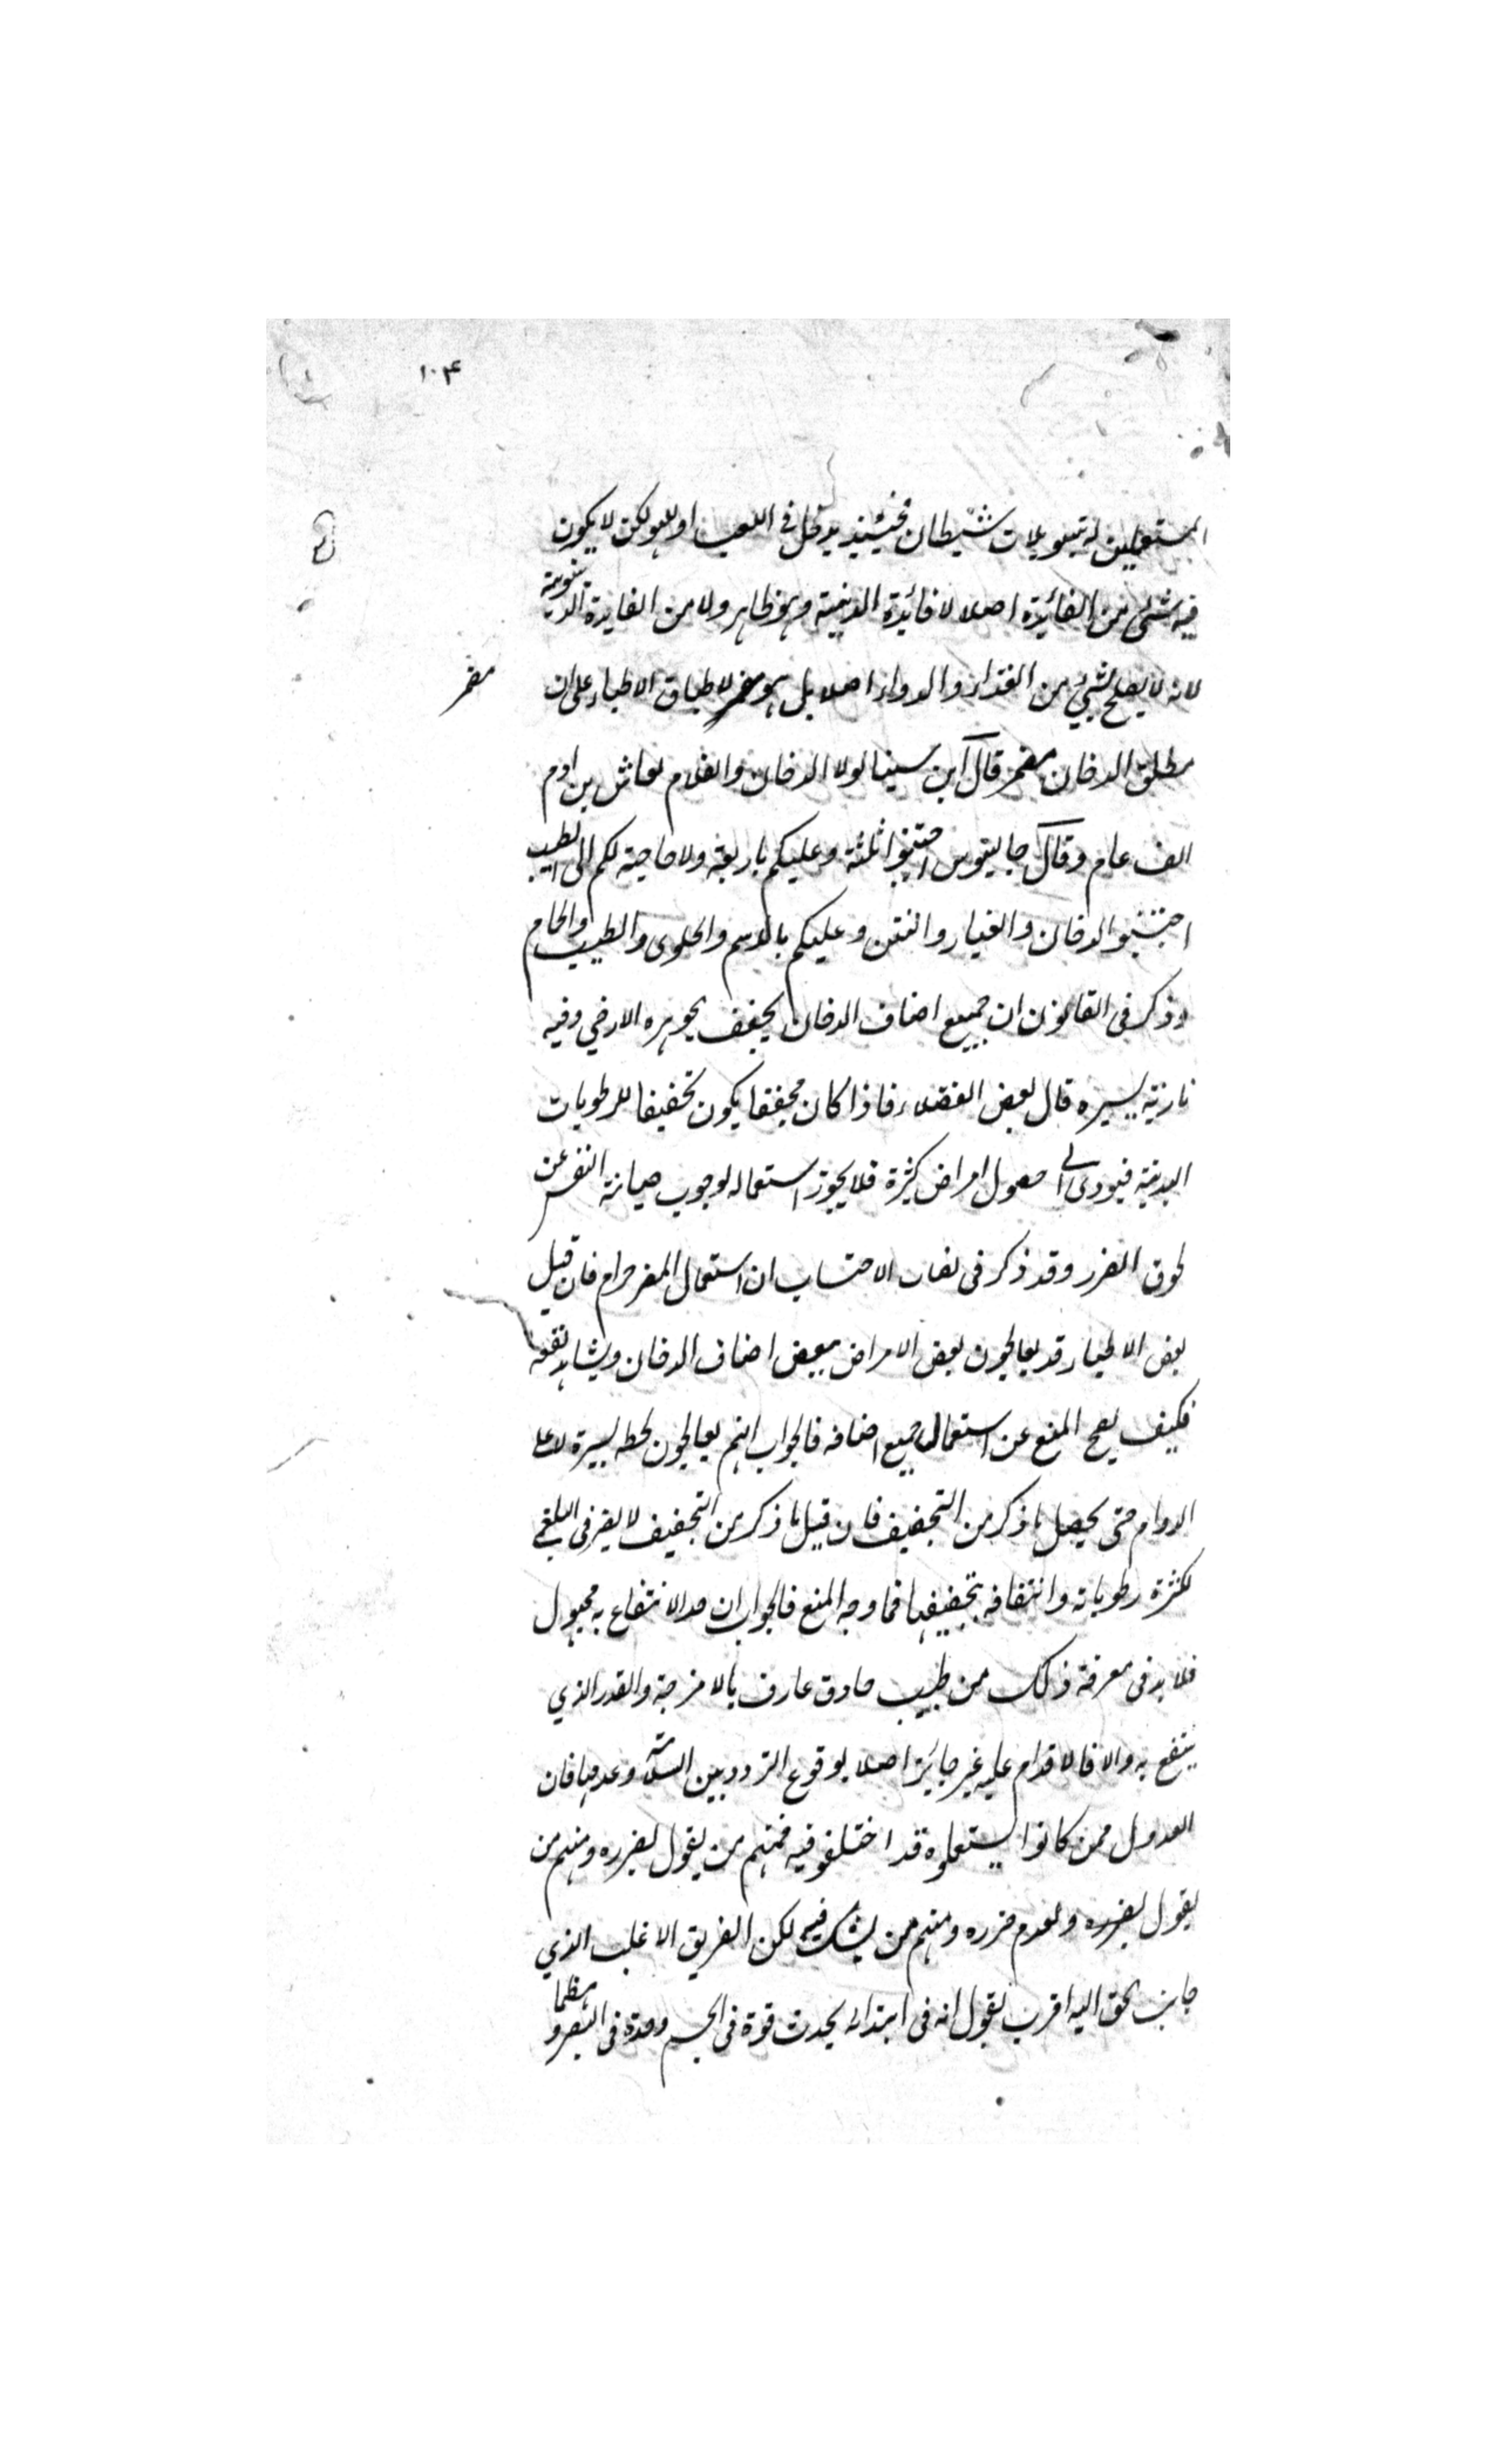 ١٠٤
المستعملين له تسويلات شيطان فحينئذ يدخل فى اللعب او اللهو لكن لا يكون
فيه شئ من الفائدة اصلا لا فائدة الدينية وهو ظاهر ولا من الفايدة الدنيوية
لانه لا يصلح لشئ من الغذاء والدواء اصلا بل هو مضر لاطباق الاطباء على ان
مضر
مطلق الدخان مضر قال ابن سينا لولا الدخان والغلام لعاش بن ادم
الف عام وقال جالينوس اجتنبوا ثلثة وعليكم باربعة ولا حاجة لكم الى الطبيب
اجتنبوا الدخان والغبار والنتن وعليكم بالدسم والحلوى والطيب والحام
وذكر فى القانون ان جميع اصناف الدخان يجفف بجوهره الارضي وفيه
نارية يسيره قال بعض الفضلاء فاذا كان مجففا يكون تجفيفا للرطوبات
البدنية فيودى الى حصول امراض كثيرة فلا يجوز استعماله لوجوب صيانة النفس عن
لحوق الضرر وقد ذكر فى نصاب الاحتساب ان استعمال المضر حرام فان قيل
بعض الاطباء قد يعالجون بعض الامراض ببعض اصناف الدخان ويشاهد نفعه
فكيف يصح المنع عن استعمال جميع اصنافه فالجواب انهم يعالجون لحظه يسيرة لا على
الدوام حتى يحصل ما ذكر من التجفيف فان قيل ما ذكر من التجفيف لا يضر فى البلغمى
لكثرة رطوباته وانتفاعه بتجفيفها فما وجه المنع فالجواب ان حد الانتفاع به مجهول
فلا بد فى معرفة ذلك من طبيب حاذق عارف بالامزجة والقدر الذي
ينتفع به والا فالاقدام عليه غير جايز اصلا لوقوع التردد بين السلامة وعدمها فان
العدول ممن كانوا يستعملوه قد اختلفو فيه فمنهم من يقول بضرره ومنهم من
يقول بضرره وبعدم ضرره ومنهم من يشك فيه لكن الفريق الاغلب الذي
جانب الحق اليه اقرب يقول انه فى ابتدائه يحدث قوة فى الجسم وحدة فى البصر و هظما